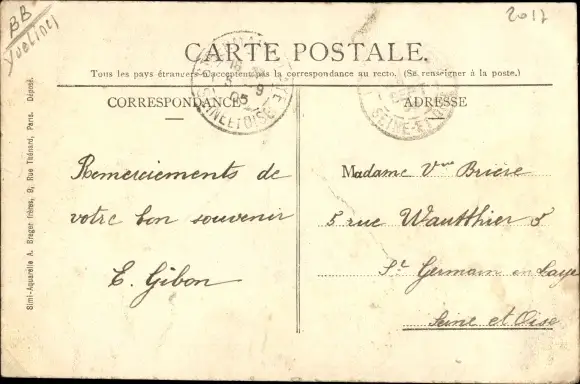 BB
Yvelines
2017
CARTE POSTALE.
Tous les pays étrangers n'acceptent pas la correspondance au recto. (Se renseigner à la poste.)
CORRESPONDANCE
Remerciements de
votre bon souvenir
E. Gibon
ADRESSE
Madame Vve Brière
5 rue Wautthier 5
St Germain en Laye
Seine et Oise
SEINE ET OISE
9
05
SEINE-ET-
Simi-Aquarelle A. Breger frères, 9, Rue Thénard, Paris. Déposé.